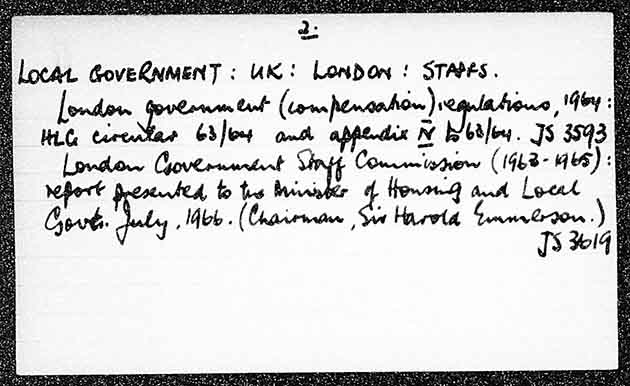 2.
LOCAL GOVERNMENT : UK : LONDON : STAFFS.
London government (compensation) regulations, 1964 :
HLG circular 63/64 and appendix N to 63/64. JS 3593
London Government Staff Commission (1963-1965) :
report presented to the Minister of Housing and Local
Govt. July, 1966. (Chairman, Sir Harold Emmerson.)
JS 3619